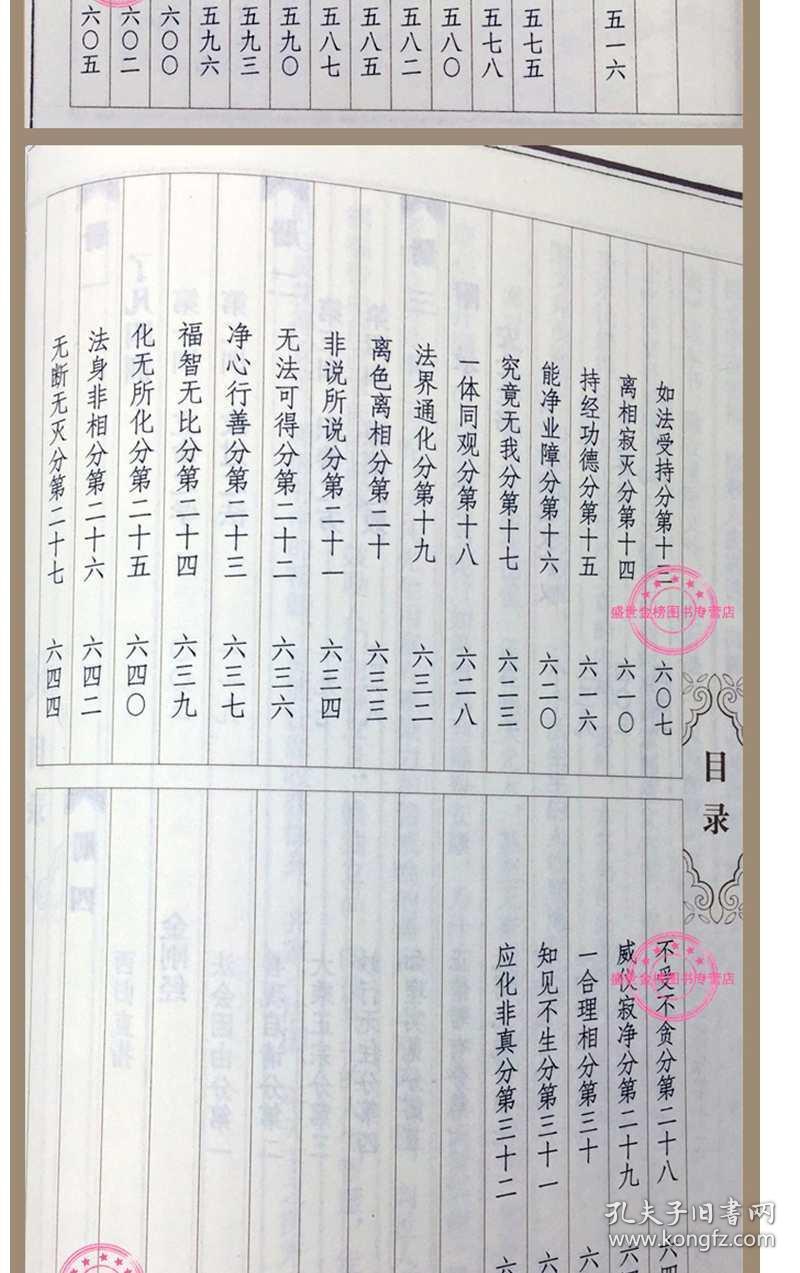 五一六
五七五
五七八
五八〇
五八二
五八五
五八七
五九〇
五九三
五九六
六〇〇
六〇二
六〇五
目录
如法受持分第十三 六〇七
离相寂灭分第十四 六一〇
持经功德分第十五 六一六
能净业障分第十六 六二〇
究竟无我分第十七 六二三
一体同观分第十八 六二八
法界通化分第十九 六三二
离色离相分第二十 六三三
非说所说分第二十一 六三四
无法可得分第二十二 六三六
净心行善分第二十三 六三七
福智无比分第二十四 六三九
化无所化分第二十五 六四〇
法身非相分第二十六 六四二
无断无灭分第二十七 六四四
不受不贪分第二十八 六四
威仪寂净分第二十九 六
一合理相分第三十 六
知见不生分第三十一 六
应化非真分第三十二 六
盛世金榜图书专营店
盛世金榜图书专营店
孔夫子旧书网
www.kongfz.com